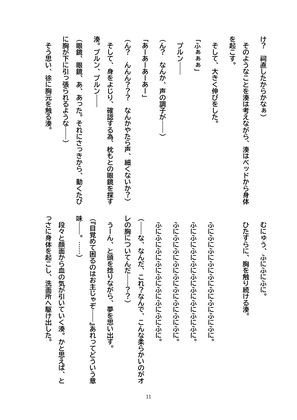 け？　祠直したからかなぁ）
　そのようなことを湊は考えながら、湊はベッドから身体
を起こす。
「ふぁぁぁ」
　そして、大きく伸びをした。
　プルン――
（ん？　なんか、声の調子が――）
「あーあーあーあー」
（ん？　んんん？？？　なんかやたら声、細くないか？）
　そして、身をよじり、確認する為、枕もとの眼鏡を探す
湊。プルン、プルン――
（眼鏡、眼鏡、あ、あった。それにさっきから、動くたび
に胸が下に引っ張られるような――）
　そう思い、徐に胸元を触る湊。
　むにゅう、ふにふにふに。
　ひたすらに、胸を触り続ける湊。
　ふにふにふにふにふにふにふにふにふに。
　ふにふにふにふにふにふにふにふにふに。
　ふにふにふにふにふにふにふにふにふに。
　ふにふにふにふにふにふにふにふにふに。
（――な、なんだ、これ？なんで、こんな柔らかいのがオ
レの胸についてんだ――？？）
　うーん、と頭を捻りながら、夢を思い出す。
（『目覚めて困るのはお主じゃぞ――』あれってどういう意
味――。……）
　段々と顔面から血の気が引いていく湊。かと思えば、と
っさに身体を起こし、洗面所へ駆け出した。
11